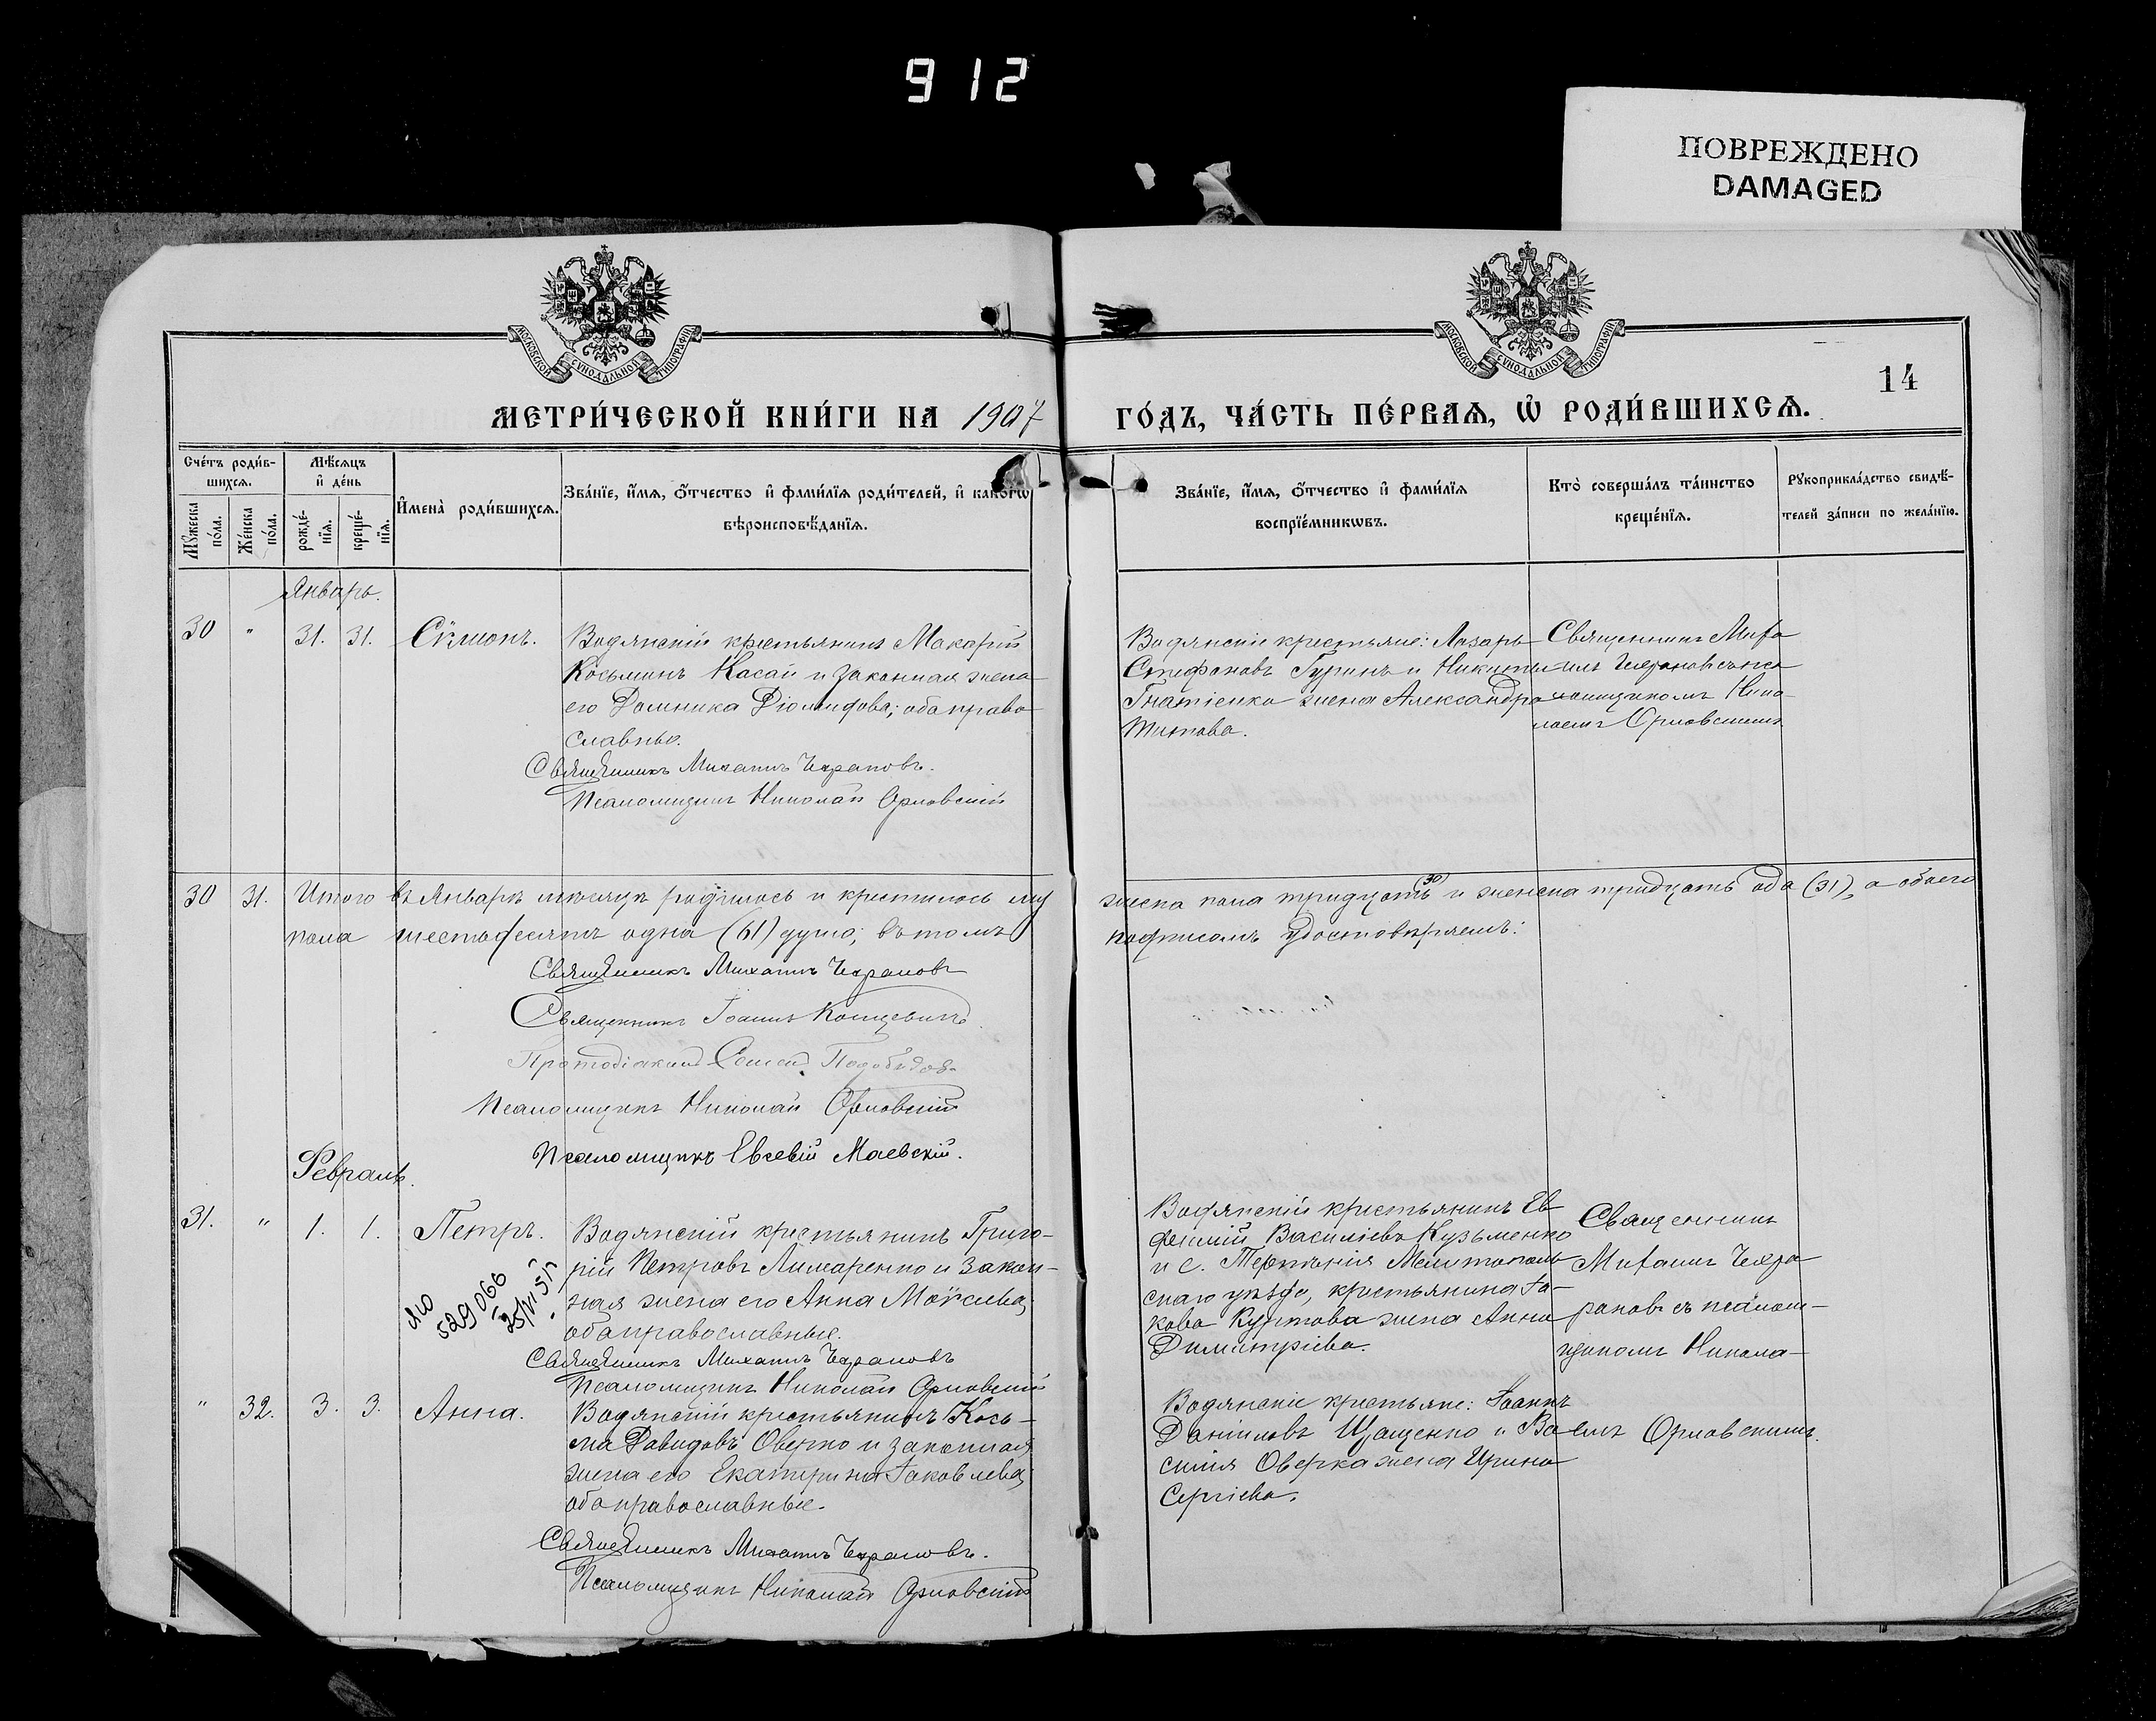 912
ПОВРЕЖДЕНО
DAMAGED
МОСКОВСКОЙ СѴНОДАЛЬНОЙ ТИПОГРАФІИ
МОСКОВСКОЙ СѴНОДАЛЬНОЙ ТИПОГРАФІИ
14
МЕТРИ́ЧЕСКОЙ КНИ́ГИ НА 1907 ГО́ДЪ, ЧА́СТЬ ПЕ́РВАѦ, Ѡ҆ РОДИ́ВШИХСѦ.
Сче́тъ роди́в-
шихсѧ.
Мꙋжеска по́ла.
Же́нска по́ла.
Мѣ́сѧцъ
и҆ де́нь
рожде́-
нїѧ.
креще́-
нїѧ.
И҆мена̀ роди́вшихсѧ.
Зва́нїе, и҆́мѧ, ѻ҆́тчество и҆ фами́лїѧ роди́телей, и҆ како́гѡ
вѣроисповѣ́данїѧ.
Зва́нїе, и҆́мѧ, ѻ҆́тчество и҆ фами́лїѧ
воспрїе́мникѡвъ.
Кто̀ соверша́лъ та́инство
креще́нїѧ.
Рꙋкоприкла́дство свидѣ́-
телей за́писи по жела́нїю.
Январь.
30 " 31. 31. Сѷмеонъ.
Водянскій крестьянинъ Макарій
Косьминъ Касай и законная жена
его Домника Діомидова; оба право
славные.
Священникъ Михаилъ
Псаломщикъ Николай Орловскій
Водянскіе крестьяне: Лазарь
Стефановъ Гуринъ и Никиты
Гнатіенко жена Александра
Титова.
Священникъ Миха
илъ
псаломщикомъ Нико-
лаемъ Орловскимъ
30 31. Итого въ Январѣ мѣсяцѣ родилось и крестилось му
жеска пола тридцать (30) и женска тридцать одa (31), а обоего
пола шестьдесятъ одна (61) душа; въ томъ
подписомъ удостовѣряемъ:
Священникъ Михаилъ
Священникъ Іоаннъ
Протодіаконъ
Псаломщикъ Николай Орловскій
Псаломщикъ Евсевій Маевскій.
Февраль.
31. " 1. 1. Петръ.
529066
25/VI 51
Водянскій крестьянинъ Григо-
рій Петровъ Лимаренко и закон-
ная жена его Анна Моѷсиева;
оба православные.
Священникъ Михаилъ
Псаломщикъ Николай Орловскій
Водянскій крестьянинъ Ев
фимій Васильевъ Кузьменко
и с. Терпѣнія Мелитополь
скаго уѣзда, крестьянина Іа-
кова Куртова жена Анна
Димитріева.
Священникъ
Михаилъ
съ псалом-
щикомъ Никола-
" 32. 3. 3. Анна.
Водянскій крестьянинъ Кось-
ма Давидовъ Оверко и законная
жена его Екатерина Іаковлева;
оба православные.
Священникъ Михаилъ
Псаломщикъ Николай Орловскій
Водянскіе крестьяне: Іоаннъ
Даніиловъ и Ва
силія Оверка жена Ирина
Сергіева.
емъ Орловскимъ.